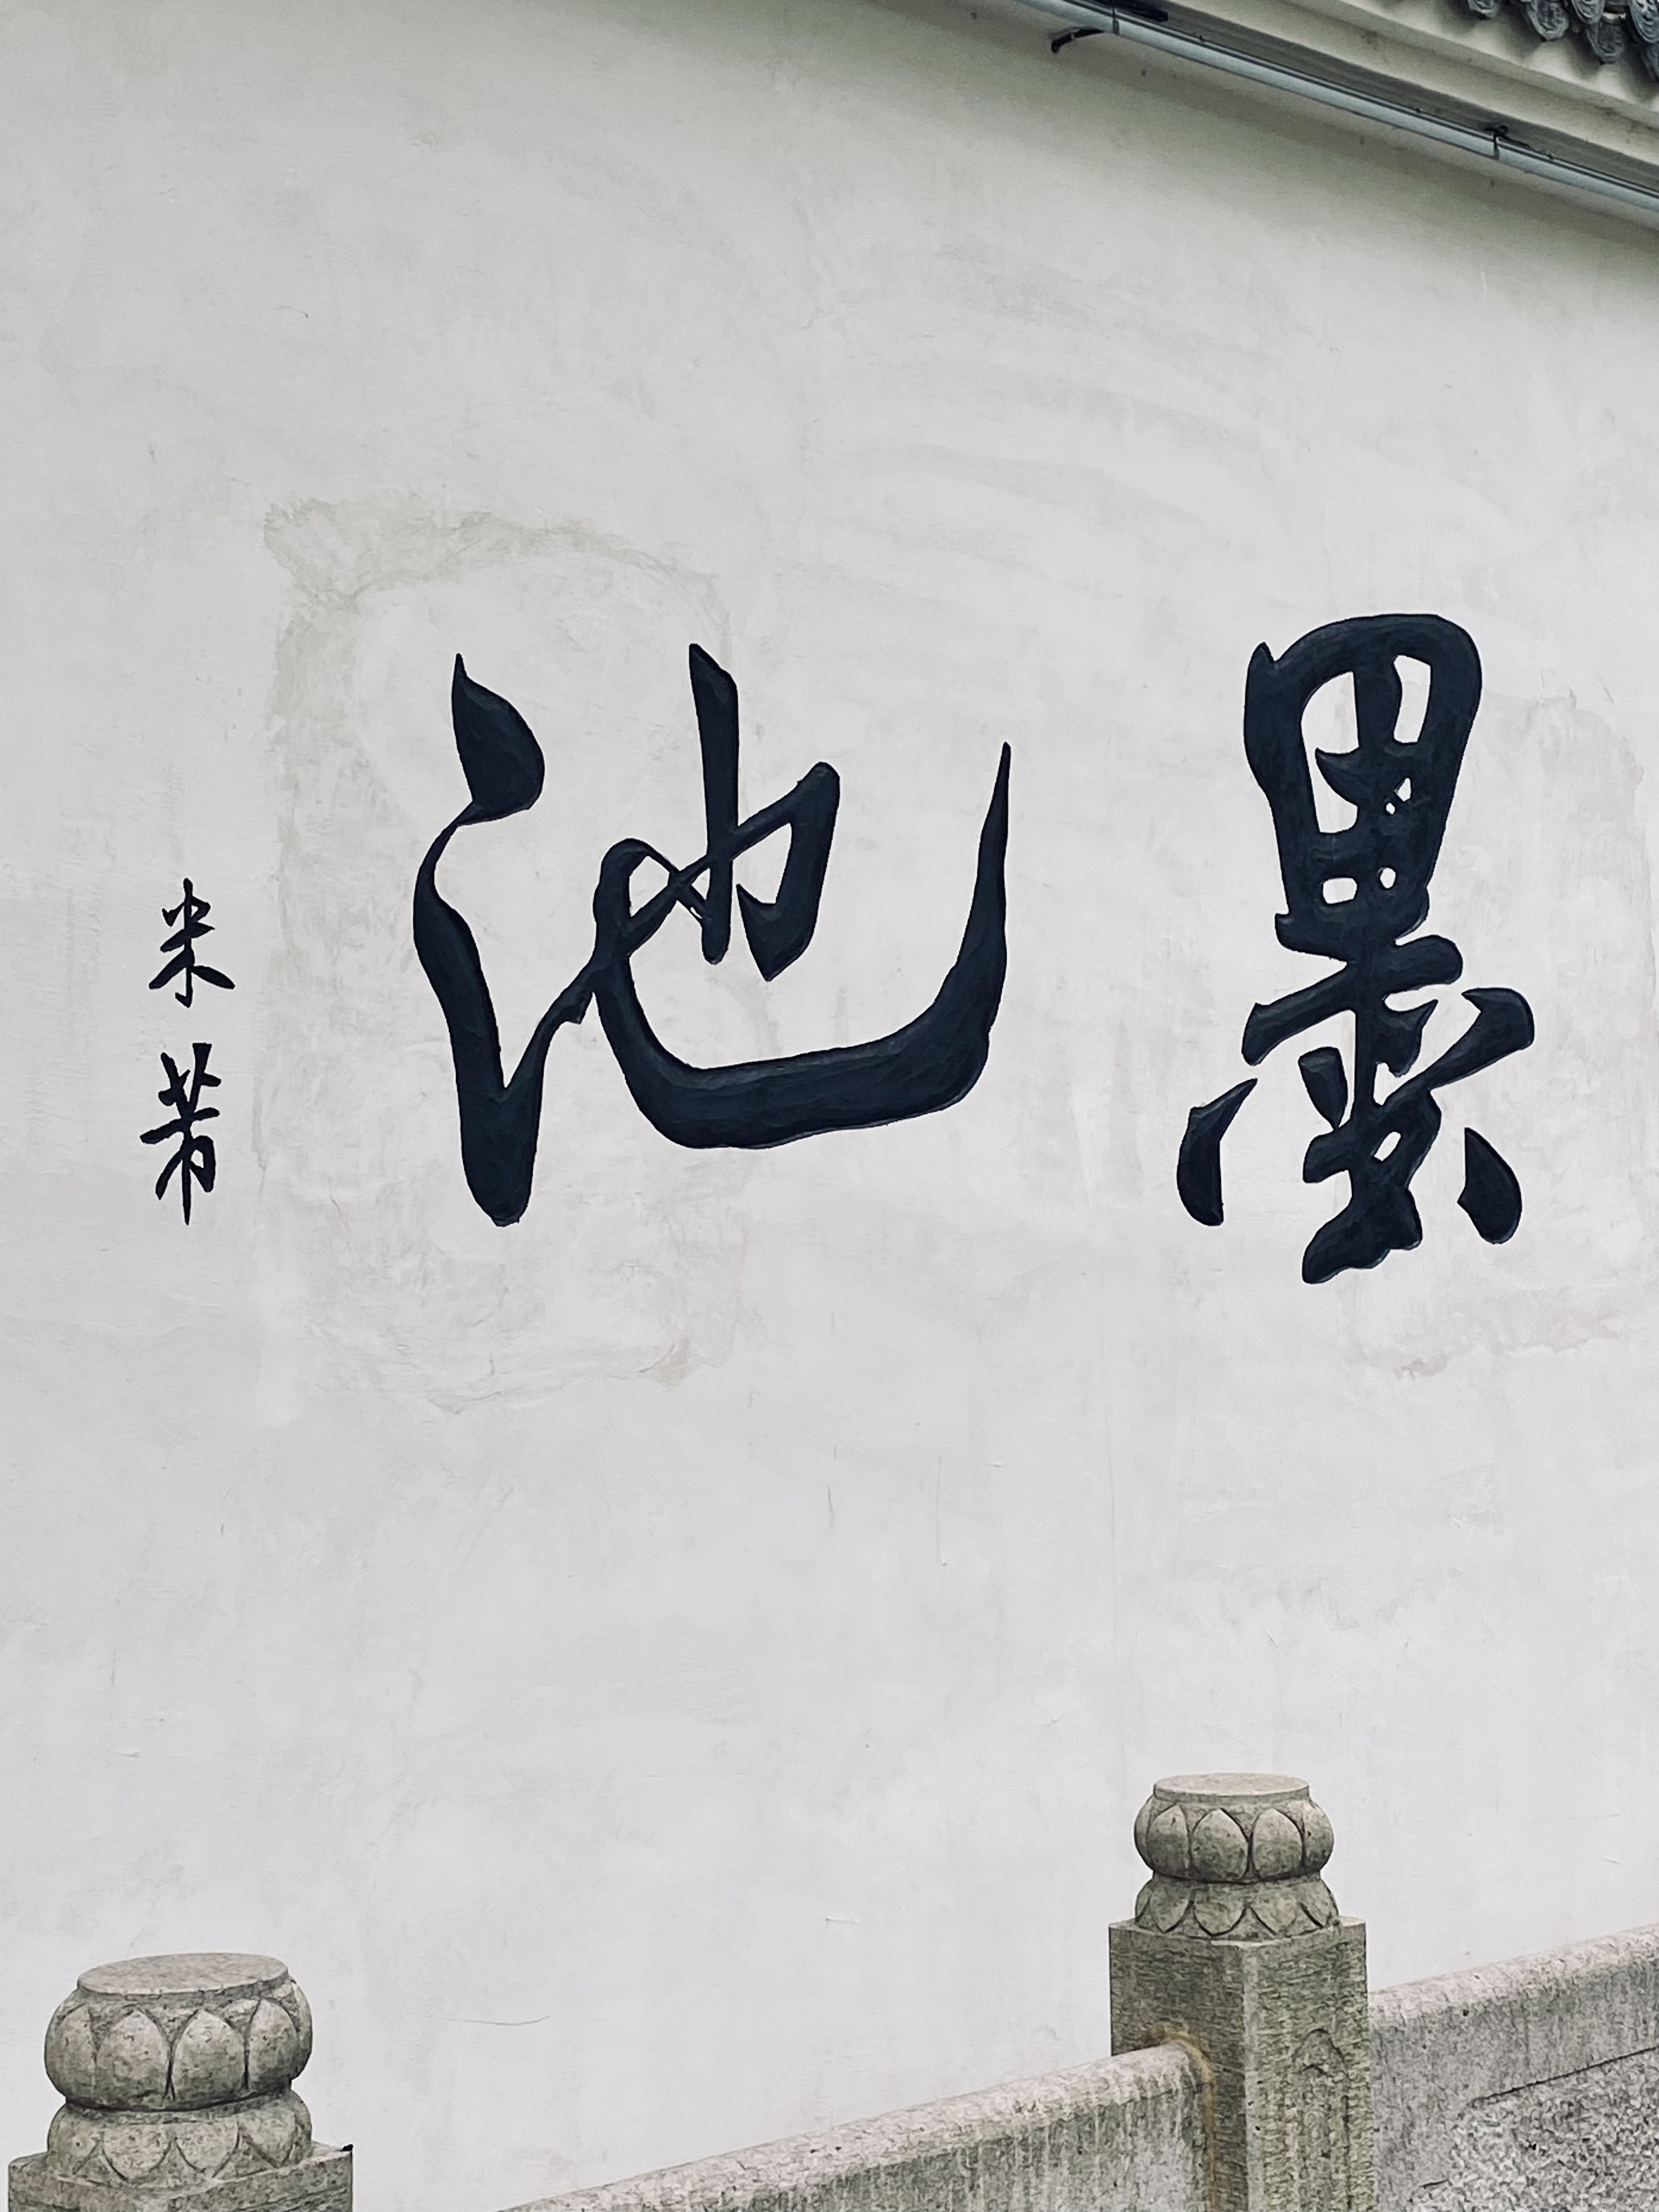 墨池
米芾